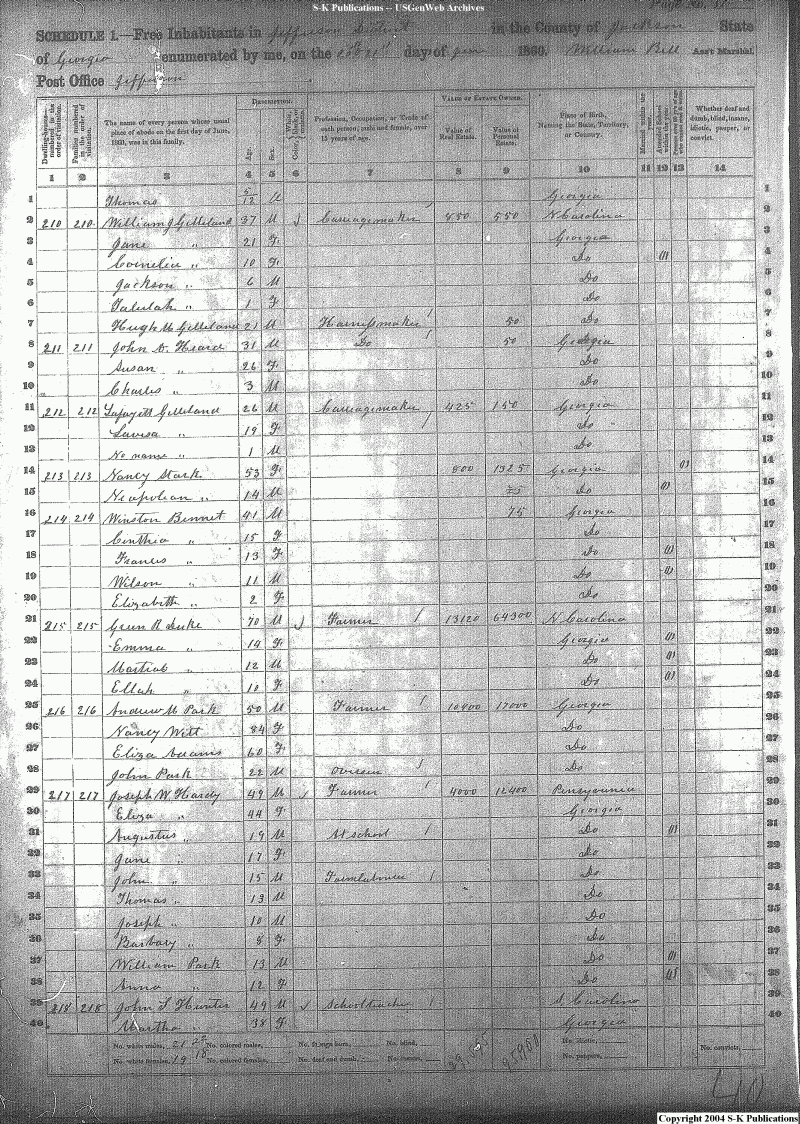 S-K Publications -- USGenWeb Archives
SCHEDULE 1.—Free Inhabitants in Jefferson District in the County of Jackson State
of Georgia enumerated by me, on the day of June 1860. William Bell Ass't Marshal.
Post Office Jefferson
DESCRIPTION. VALUE OF ESTATE OWNED.
Dwelling-houses numbered in the order of visitation. Families numbered in the order of visitation. The name of every person whose usual place of abode on the first day of June, 1860, was in this family. Age. Sex. Profession, Occupation, or Trade of each person, male and female, over 15 years of age. Value of Real Estate. Value of Personal Estate. Place of Birth, Naming the State, Territory, or Country. Married within the year. Whether deaf and dumb, blind, insane, idiotic, pauper, or convict.
1 2 3 4 5 6 7 8 9 10 11 12 13 14
1 Thomas 5/12 M Georgia 1
2 210 210 William J Gilleland 37 M Carriagemaker 850 550 N Carolina 2
3 Jane " 21 F Georgia 3
4 Cornelia " 10 F Do 4
5 Jackson " 6 M Do 5
6 Talulah " 1 F Do 6
7 Hugh M Gilleland 21 M Harnessmaker 50 Do 7
8 211 211 John Heard 31 M Do 50 Georgia 8
9 Susan " 26 F Do 9
10 Charles " 3 M Do 10
11 212 212 Lafayett Gilleland 26 M Carriagemaker 425 150 Georgia 11
12 Lavisa " 19 F Do 12
13 No name " 1 M Do 13
14 213 213 Nancy Stark 53 F 800 1325 Georgia 14
15 Neapolean " 14 M Do 15
16 214 214 Winston Bennet 41 M 75 Georgia 16
17 Cinthia " 15 F Do 17
18 Francis " 13 F Do 18
19 Wilson " 11 M Do 19
20 Elizabeth " 2 F Do 20
21 215 215 Green R Duke 70 M Farmer 13120 64300 N Carolina 21
22 Emma " 14 F Georgia 22
23 Martial " 12 M Do 23
24 Ellah " 10 F Do 24
25 216 216 Andrew M Park 50 M Farmer 10400 17000 Georgia 25
26 Nancy Witt 84 F Do 26
27 Eliza Adams 60 F Do 27
28 John Park 22 M Overseer Do 28
29 217 217 Joseph W. Hardy 49 M Farmer 4000 12400 Pensyvania 29
30 Eliza " 44 F Georgia 30
31 Augustus " 19 M At school Do 31
32 Jane " 17 F Do 32
33 John " 15 M Farmlaborer Do 33
34 Thomas " 13 M Do 34
35 Joseph " 10 M Do 35
36 Barbary " 8 F Do 36
37 William Park 13 M Do 37
38 Anna " 12 F Do 38
39 218 218 John T Hunter 49 M Schoolteacher S. Carolina 39
40 Martha " 38 F Georgia 40
No. white males, 21 22 No. colored males, No. foreign born, No. blind, No. idiotic, No. convicts,
No. white females, 19 18 No. colored females, No. deaf and dumb, No. insane, No. paupers,
40
Copyright 2004 S-K Publications